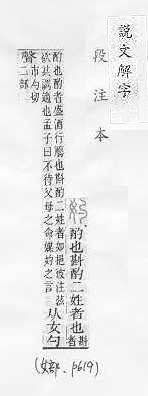 說文解字
段注本
妁 酌也斟酌二姓者也斟者
酌也酌者盛酒行觴也斟酌二姓者如挹彼注茲
欲其調適也孟子曰不待父母之命媒妁之言
从女勺
聲市勺切
二部
(女部、p619)